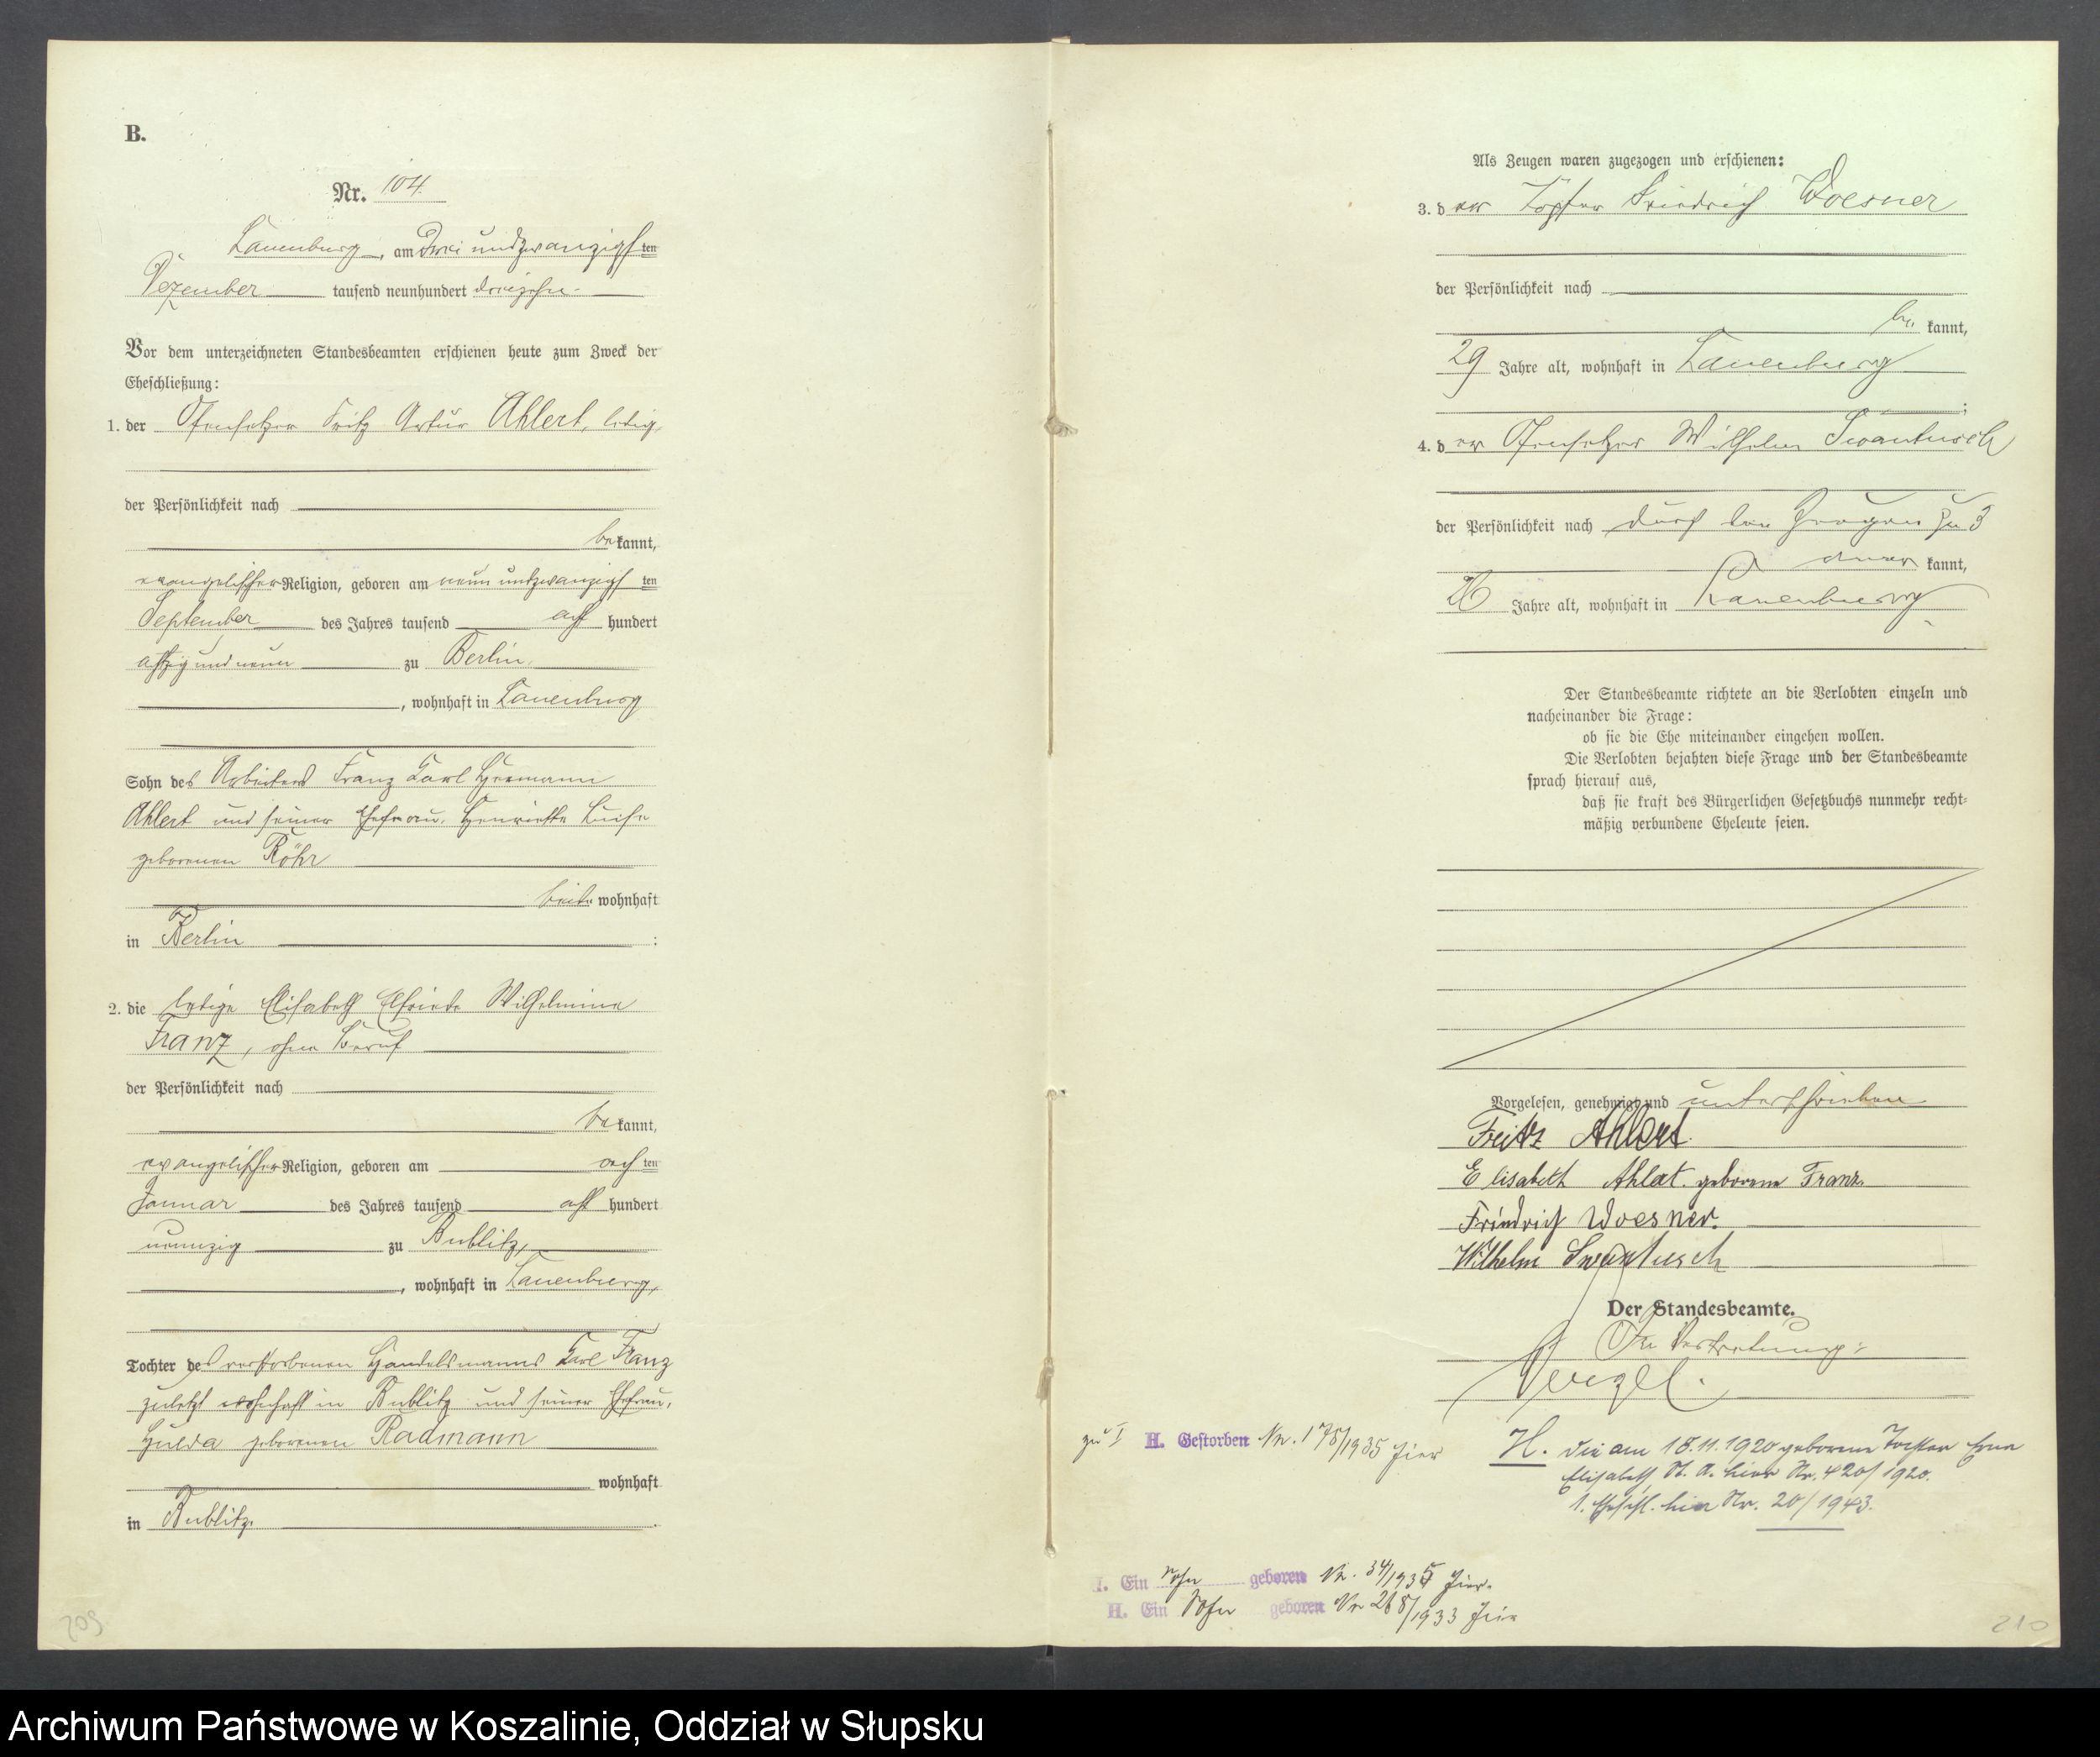 B.
Nr. 104.
Lauenburg, am drei undzwanzigsten
Dezember tausend neunhundert dreizehn.
Vor dem unterzeichneten Standesbeamten erschienen heute zum Zweck der
Eheschließung:
1. der Ofensetzer Fritz Artur Ahlert, ledig,
der Persönlichkeit nach
bekannt,
evangelischer Religion, geboren am neun undzwanzigsten
September des Jahres tausend acht hundert
achtzig und neun zu Berlin,
, wohnhaft in Lauenburg
Sohn des Arbeiters Franz Karl Hermann
Ahlert und seiner Ehefrau, Henriette Luise
geborenen Röhr
beide wohnhaft
in Berlin :
2. die ledige Elisabeth Elfriede Wilhelmine
Franz, ohne Beruf
der Persönlichkeit nach
bekannt,
evangelischer Religion, geboren am achten
Januar des Jahres tausend acht hundert
neunzig zu Bublitz,
, wohnhaft in Lauenburg,
Tochter des verstorbenen Handelsmanns Karl Franz
zuletzt wohnhaft in Bublitz und seiner Ehefrau,
Hulda geborenen Radmann
wohnhaft
in Bublitz.
209
Als Zeugen waren zugezogen und erschienen:
3. der Töpfer Friedrich Woesner
der Persönlichkeit nach
bekannt,
29 Jahre alt, wohnhaft in Lauenburg
;
4. der Ofensetzer Wilhelm Swantusch
der Persönlichkeit nach durch den Zeugen zu 3
anerkannt,
26 Jahre alt, wohnhaft in Lauenburg
Der Standesbeamte richtete an die Verlobten einzeln und
nacheinander die Frage:
ob sie die Ehe miteinander eingehen wollen.
Die Verlobten bejahten diese Frage und der Standesbeamte
sprach hierauf aus,
daß sie kraft des Bürgerlichen Gesetzbuchs nunmehr recht-
mäßig verbundene Eheleute seien.
Vorgelesen, genehmigt und unterschrieben
Fritz Ahlert.
Elisabeth Ahlert. geborene Franz.
Friedrich Woesner.
Wilhelm Swantusch
Der Standesbeamte.
In Vertretung:
zu I H. Gestorben Nr. 175/1935 hier
H. die am 18.11.1920 geborene Tochter Erna
Elisabeth St. A. hier Nr. 420/1920.
1. Eheschl. hier Nr. 20/1943.
H. Ein Sohn geboren Nr. 34/1935 hier.
H. Ein Sohn geboren Nr 268/1933 hier
210
Archiwum Państwowe w Koszalinie, Oddział w Słupsku